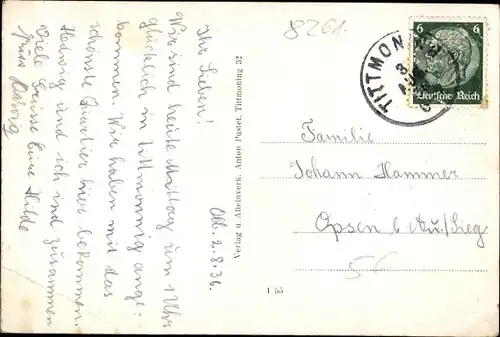 Abb. 2.8.36.
Ihr Lieben!
Wir sind heute Mittag um 1 Uhr
glücklich in Tittmonnig ange-
kommen. Wir haben mit das
schönste Quartier hier bekommen.
Hedwig und ich sind zusammen
Viele Grüsse Eure Hilde
Gruss Hedwig
Verlag u. Alleinverk. Anton Pustet, Tittmoning 32
1 55
8261.
TITTMON
6 6
Deutsches Reich
Familie
Johann Hammer
Opsen b Au/Sieg
56